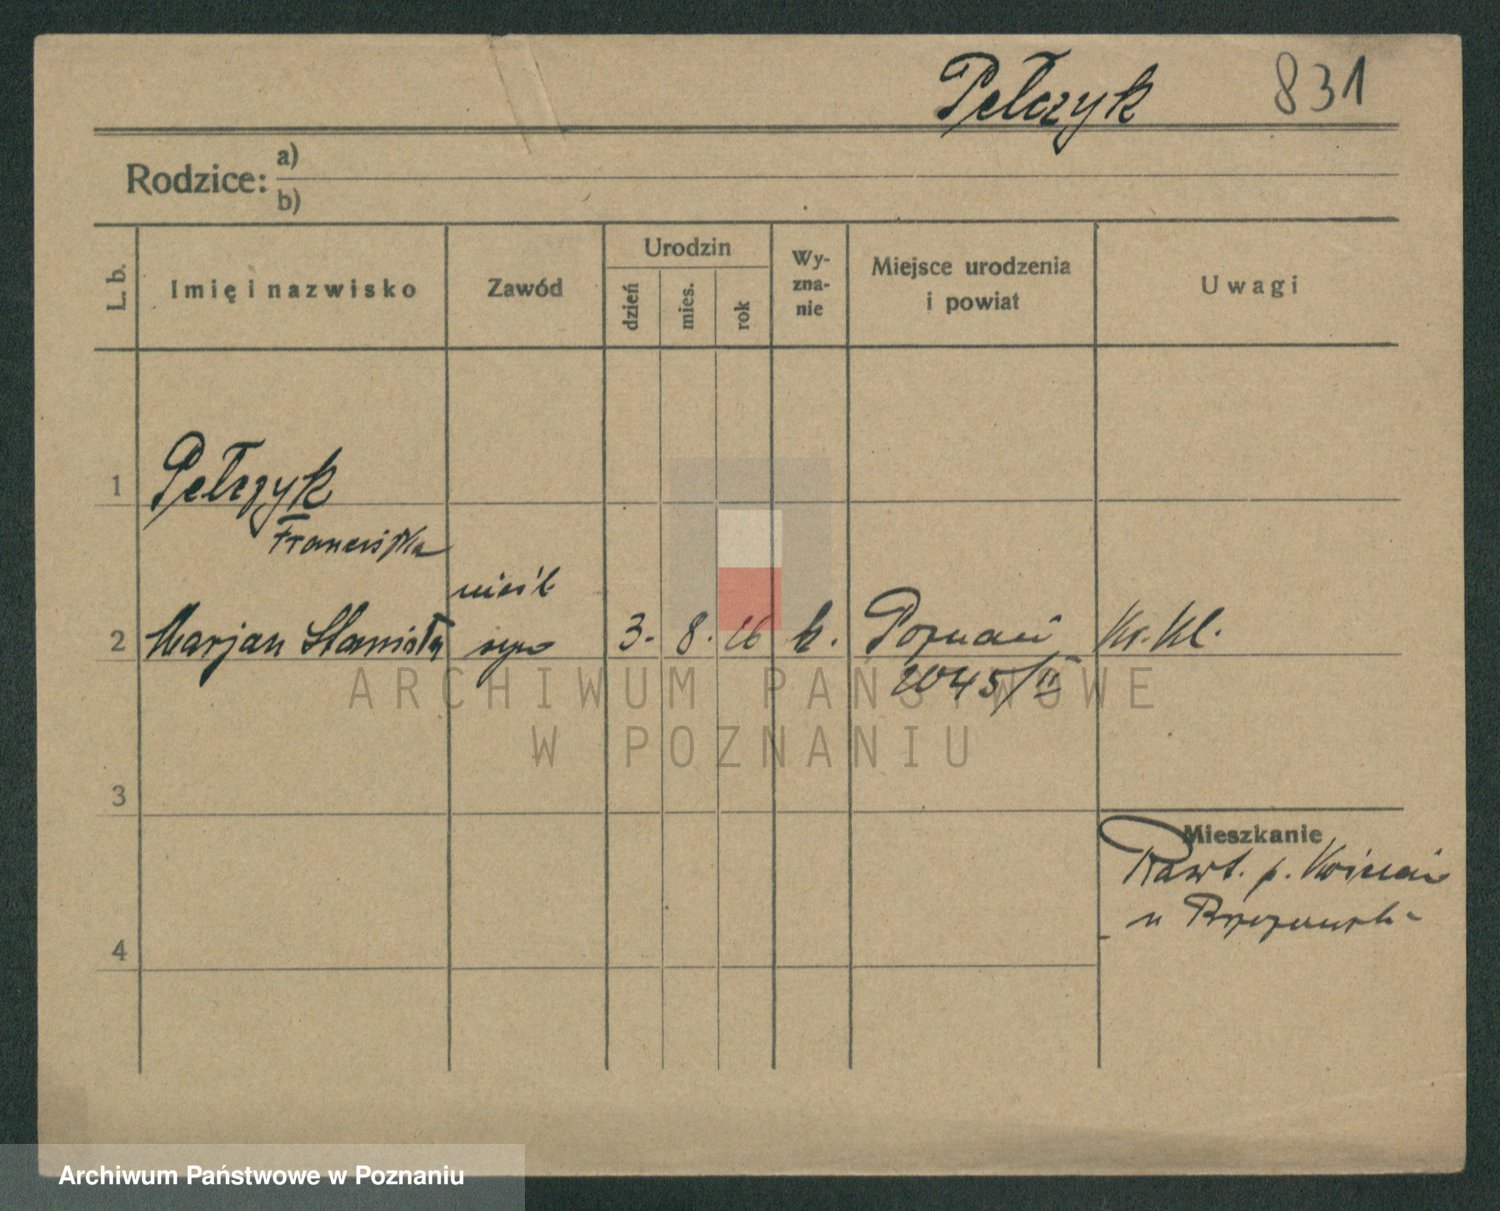 Pełczyk 831
Rodzice: a)
b)
L. b.
Imię i nazwisko
Zawód
Urodzin
dzień
mies.
rok
Wy-
zna-
nie
Miejsce urodzenia
i powiat
Uwagi
1 Pełczyk
Franciszka
nieśl.
2 Marjan Stanisław syn 3. 8. 26 k. Poznań Kr. Kl.
2045/II
ARCHIWUM PAŃSTWOWE
W POZNANIU
3
Mieszkanie
p.
u
4
Archiwum Państwowe w Poznaniu